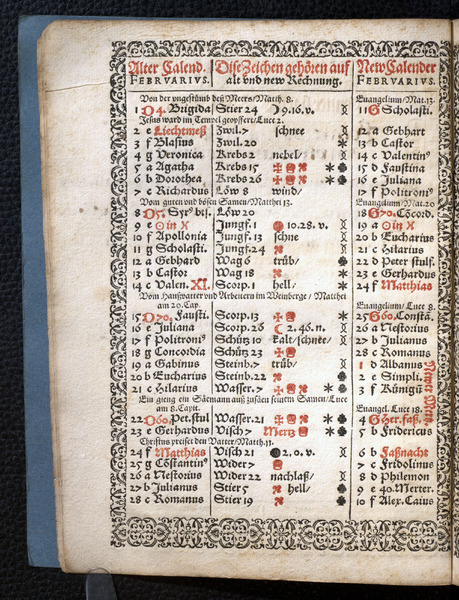 Alter Calend. Dise Zeichen gehören auf New Calender
FEBRVARIVS. alt vnd new Rechnung. FEBRVARIVS.
Von der vngestümb deß Meers/Matth. 8. Euangelium/Mat.13.
1 D 4. Brigida Stier 24 9.16.v. 11 G Scholasti.
Jesus ward im Tempel geopffert/Luce 2.
2 e Liechtmeß Zwil.7 schnee 12 a Gebhart
3 f Blasius Zwil.20 13 b Castor
4 g Veronica Krebs 2 nebel/ 14 c Valentin
5 a Agatha Krebs 15 15 d Faustina
6 b Dorothea Krebs 26 16 e Juliana
7 c Richardus Löw 8 wind/ 17 f Politroni
Vom guten vnd bösen Samen/Matthei 13. Euangelium/Mat.20
8 D 5. Syr bis. Löw 20 18 G 70. Cöcord.
9 e ☉ in X Jungf.1 10.28.v. 19 a ☉ in X
10 f Apollonia Jungf.13 schne 20 b Eucharius
11 g Scholasti. Jungf.24 21 c Hilarius
12 a Gebhard Wag 6 trüb/ 22 d Peter stulf.
13 b Castor Wag 18 23 e Gerhardus
14 c Valen. XI. Scorp.1 hell/ 24 f Matthias
Vom Haußvatter vnd Arbeitern im Weinberge/ Matthei
am 20. Cap. Euangelium/Luce 8.
15 D 70. Fausti. Scorp.13 25 G 60. Constā.
16 e Juliana Scorp.26 2.46.n. 26 a Nestorius
17 f Politroni Schütz 10 kalt/schnee/ 27 b Julianus
18 g Concordia Schütz 23 28 c Romanus
19 a Gabinus Steinb.7 trüb/ 1 d Albanus
20 b Eucharius Steinb.22 2 e Simpli.
21 c Hilarius Wasser.7 3 f Künigū
Newer Mertz.
Ein gieng ein Säemann auß zusäen seinem Samen/Luce
am 8. Capit. Euangel. Luce 18.
22 D 60. Pet.stul Wasser.21 4 G Her.faß.
23 e Gerhardus Visch 7 Mertz 5 b Fridericus
Christus preiset den Vatter/Matth.11.
24 f Matthias Visch 21 2.0.v. 6 b Faßnacht
25 g Cōstantin Wider 7 7 c Fridolinus
26 a Nestorius Wider 22 nachlaß/ 8 d Philemon
27 b Julianus Stier 5 hell/ 9 e 40.Merter.
28 c Romanus Stier 19 10 f Alex.Caius